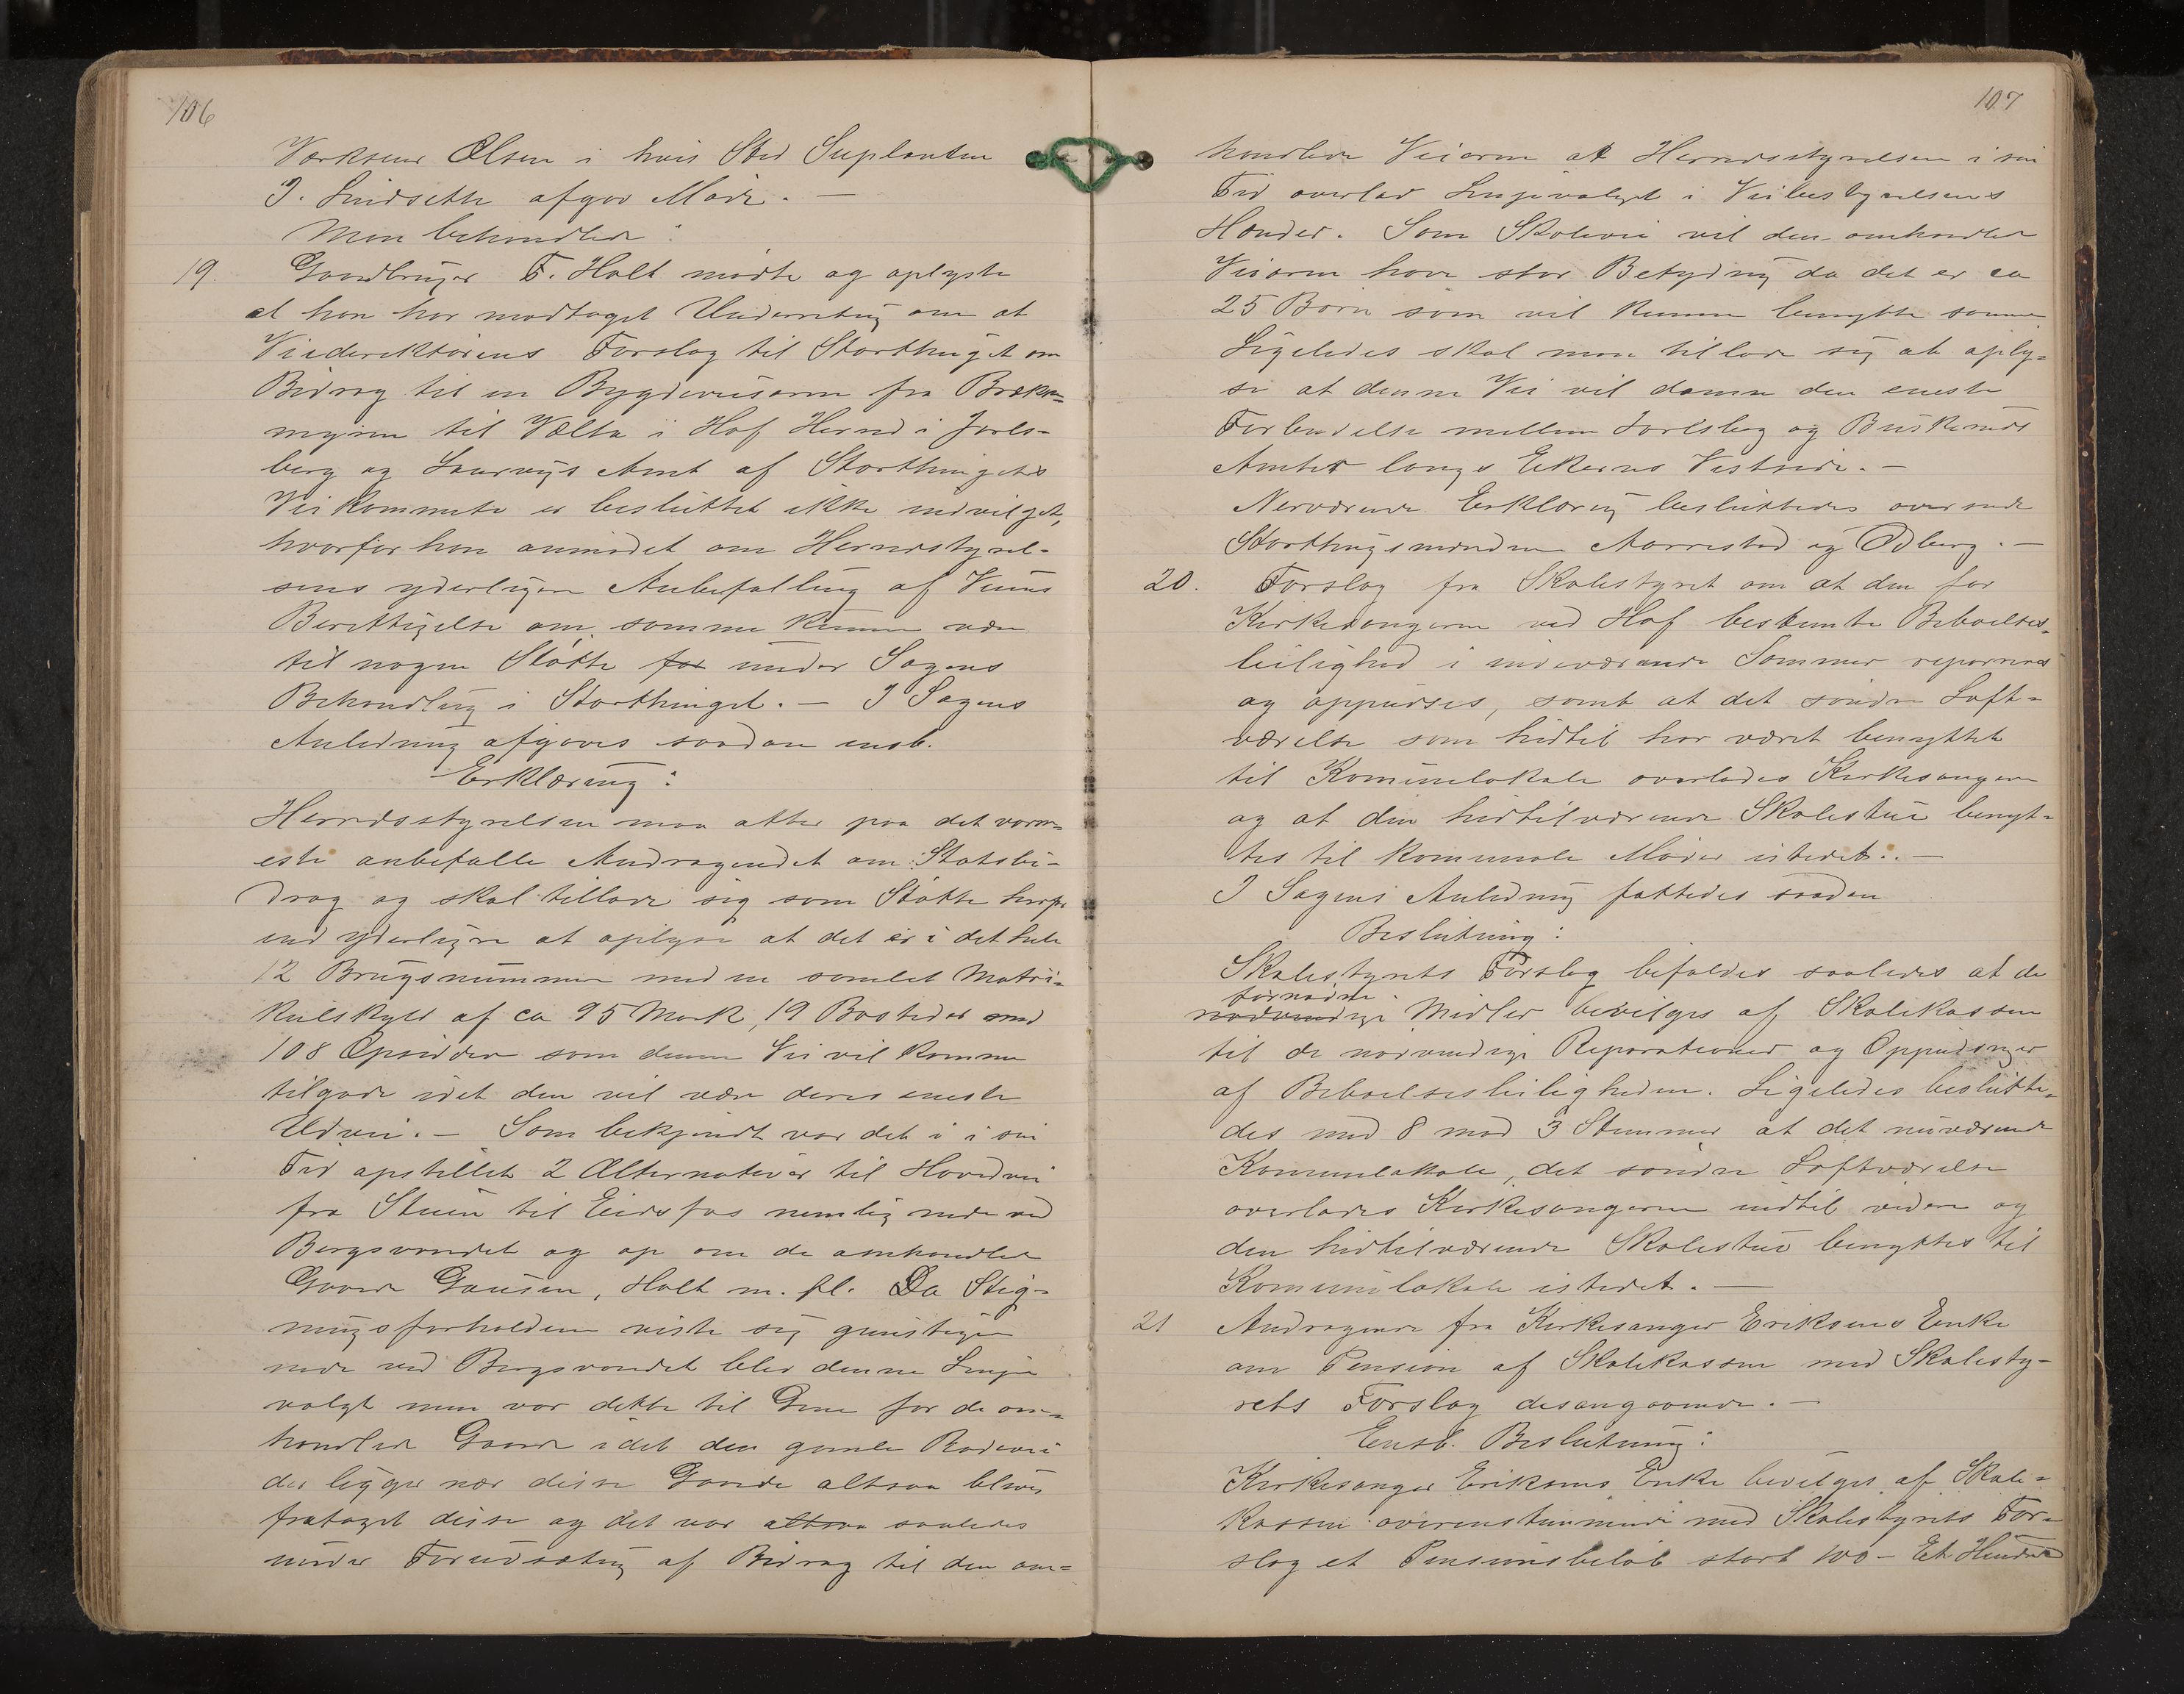 106
Værkseier Olsen i hvis Sted Suplanten
J. Lindseth afgav Møde. —
Man behandlede:
19. Gaardbruger F. Holt mødte og oplyste
at han har modtaget Underretning om at
Veidirektørens Forslag til Storthinget om
Bidrag til en Bygdeveiarm fra Bræken-
myren til Vælta i Hof Herred i Jarls-
berg og Laurvigs Amt af Storthingets
Veikommite er besluttet ikke indvilget,
hvorfor han anmodet om Herredstyrel-
sens yderligere Anbefalling af Veiens
Berettigelse om samme kunne være
til nogen Støtte for under Sagens
Behandling i Storthinget. — I Sagens
Anledning afgaves saadan ensb.
Erklæring:
Herredsstyrelsen maa atter paa det varm-
este anbefalle Andragendet om Statsbi-
drag og skal tillade sig som Støtte herfor
end yderligere at oplyse at det er i det hele
12 Brugsnummer med en samlet Matri-
kulskyld af ca 95 Mark, 19 Bosteder med
108 Opsiddere som denne Vei vil komme
tilgode idet den vil være deres eneste
Udvei. — Som bekjendt var det i i sin
Tid opstillet 2 Alternativer til Hovedvei
fra Steen til Eidsfos nemlig nede ved
Bergsvandet og op om de omhandlede
Gaarde Gausen, Holt m. fl. Da Stig-
ningsforholdene viste sig gunstigere
nede ved Bergsvandet blev denne Linje
valgt men var dette til Gene for de om-
handlede Gaarde idet den gamle Rodevei
der ligger nær disse Gaarde altsaa blev
frataget disse og det var altsaa saaledes
under Forudsætning af Bidrag til den om-
107
handlede Veiarm at Herredsstyrelsen i sin
Tid overlod Linjevalget i Veibestyrelsens
Hænder. Som Skolevei vil den omhandlede
Veiarm have stor Betydning da det er ca
25 Børn som vil kunne benytte samme.
Ligeledes skal man tillade sig at oply-
se at denne Vei vil danne den eneste
Forbindelse mellem Jarlsberg og Buskeruds
Amter langs Eikerens Vestside. —
Nerværende Erklæring besluttedes oversendt
Storthingsmændene Aarrestad og Ødberg. —
20. Forslag fra Skolestyret om at den for
Kirkesangeren ved Hof bestemte Beboelses-
leilighed i indeværende Sommer repareres
og oppudses, samt at det søndre Loft-
værelse som hidtil har været benyttet
til Komunelokale overlades Kirkesangeren
og at den hidtilværende Skolestue benyt-
tes til komunale Møder istedet. —
I Sagens Anledning fattedes saadan
Beslutning:
Skolestyrets Forslag bifaldes saaledes at de
fornødne
nødvendige Midler bevilges af Skolekassen
til de nødvendige Reparationer og Oppudsninger
af Beboelsesleiligheden. Ligeledes beslutte-
des med 8 mod 3 Stemmer at det nuværende
Komunelokale, det søndre Loftværelse
overlades Kirkesangeren indtil videre og
den hidtilværende Skolestue benyttes til
Komunelokale istedet. —
21 Andragende fra Kirkesanger Eriksens Enke
om Pension af Skolekassen med Skolesty-
rets Forslag desangaaende. —
Ensb. Beslutning:
Kirkesanger Eriksens Enke bevilges af Skole-
kassen overenstemmende med Skolestyrets For-
slag et Pensionsbeløb stort 100 — Et Hundrede